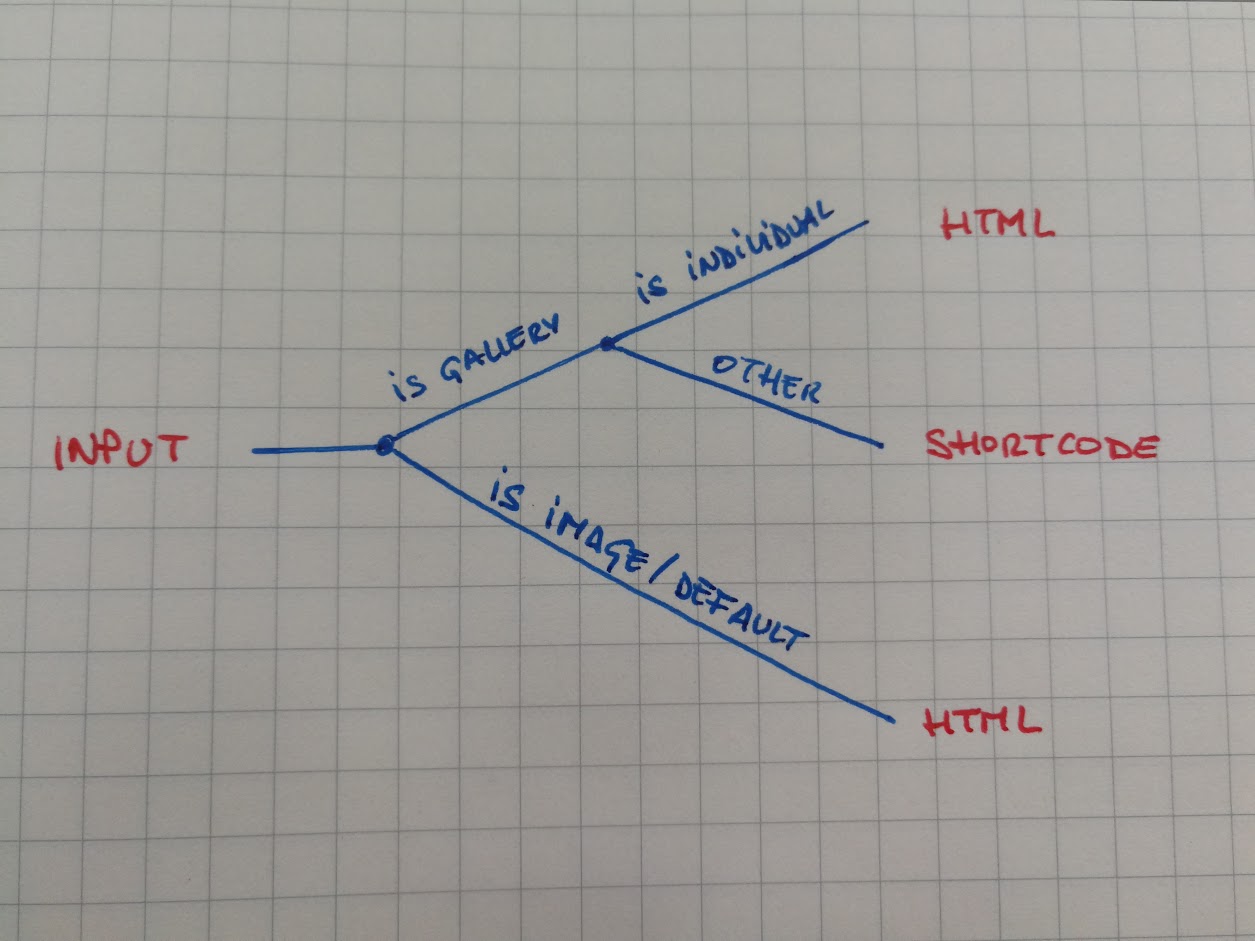 is INDIVIDUAL
HTML
is GALLERY
OTHER
INPUT
SHORTCODE
is iMAGE/DEFAULT
HTML